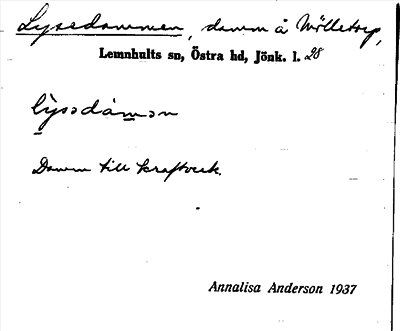 Lyssdammen, damm å Mölletorp,
Lemnhults sn, Östra hd, Jönk. l. 28
lỳsədàmən
Damm till kraftverk.
Annalisa Anderson 1937